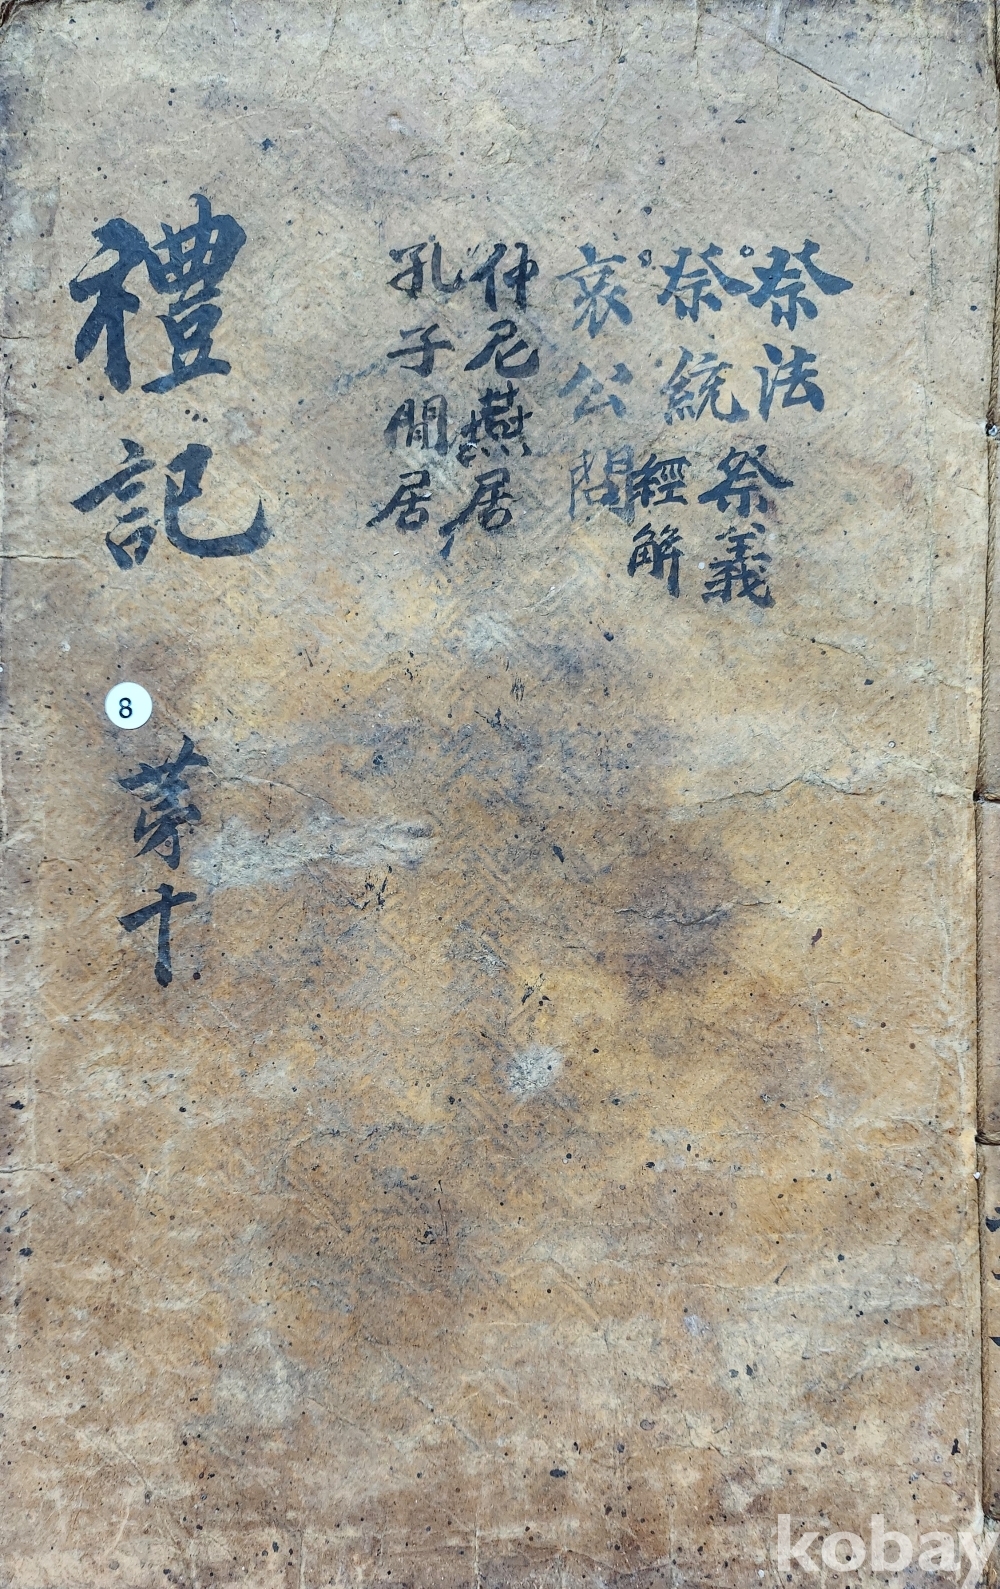 祭法
祭義
祭統
經解
哀公問
仲尼燕居
孔子閒居
禮記
苐十
8
kobay